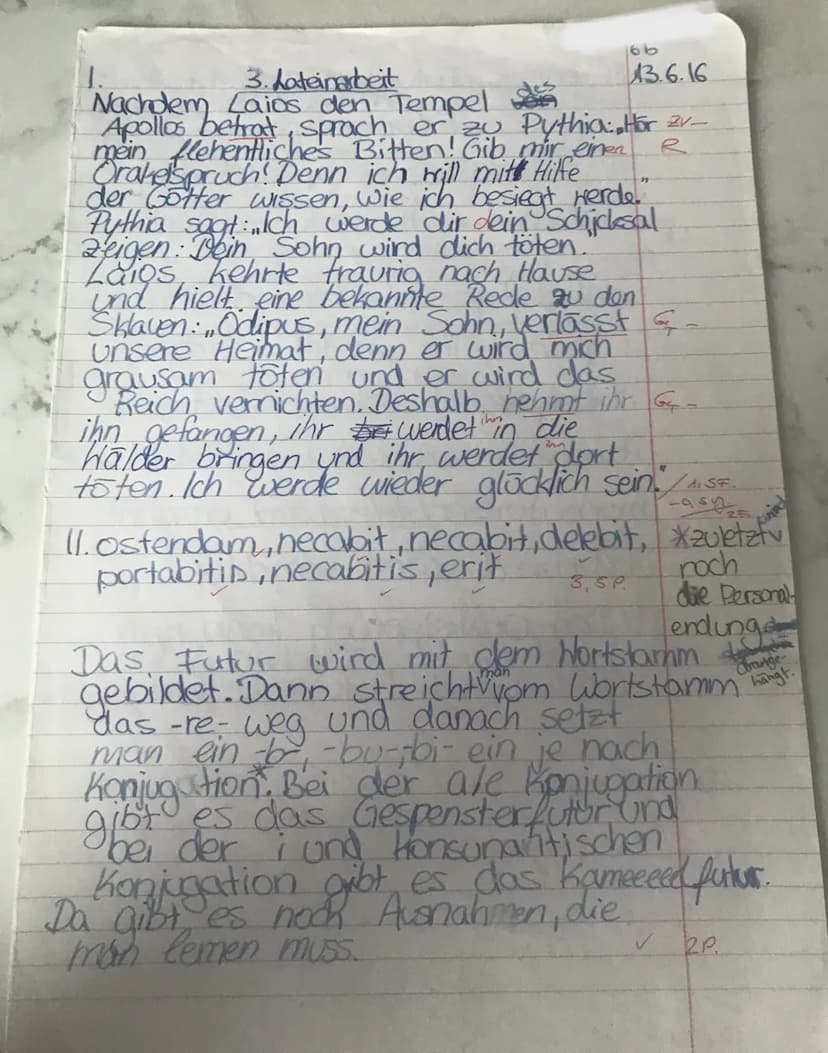 6b
I. 3. Lateinarbeit 13.6.16
Nachdem Laios den Tempel des
Apollos betrat, sprach er zu Pythia: „Hör zv-
mein flehentliches Bitten! Gib mir einen R
Orakelspruch! Denn ich will mit Hilfe
der Götter wissen, wie ich besiegt werde."
Pythia sagt: „Ich werde dir dein Schicksal
zeigen: Dein Sohn wird dich töten.
Laios kehrte traurig nach Hause
und hielt eine bekannte Rede zu den
Sklaven: „Ödipus, mein Sohn, verlässt G -
unsere Heimat, denn er wird mich
grausam töten und er wird das
Reich vernichten. Deshalb nehmt ihr G -
ihn gefangen, ihr werdet ihn in die
Wälder bringen und ihr werdet ihn dort
töten. Ich werde wieder glücklich sein."
II. ostendam, necabit, necabit, delebit, *zuletzt wird
portabitis, necabitis, erit 3,5 P. noch
die Personal-
endung
drange-
hängt.
Das Futur wird mit dem Wortstamm
gebildet. Dann streicht man vom Wortstamm
das -re- weg und danach setzt
man ein -b-, -bu-, -bi- ein je nach
Konjugation*. Bei der a/e Konjugation
gibt es das Gespensterfutur und
bei der i und konsunantischen
Konjugation gibt es das Kameeeelfutur.
Da gibt es noch Ausnahmen, die
man lernen muss. ✓ 2P.